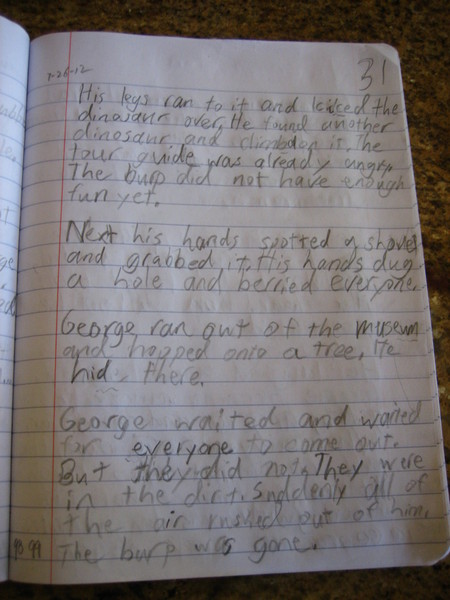 7-26-12
31
His legs ran to it and kicked the
dinosaur over. He found another
dinosaur and climbdon it. The
tour guide was already angry.
The burp did not have enough
fun yet.
Next his hands spotted a shovel
and grabbed it. His hands dug
a hole and berried everyone.
George ran out of the museum
and hopped onto a tree. He
hid there.
George waited and waited
for everyone to come out.
But they did not. They were
in the dirt. Suddenly all of
the air rushed out of him.
The burp was gone.